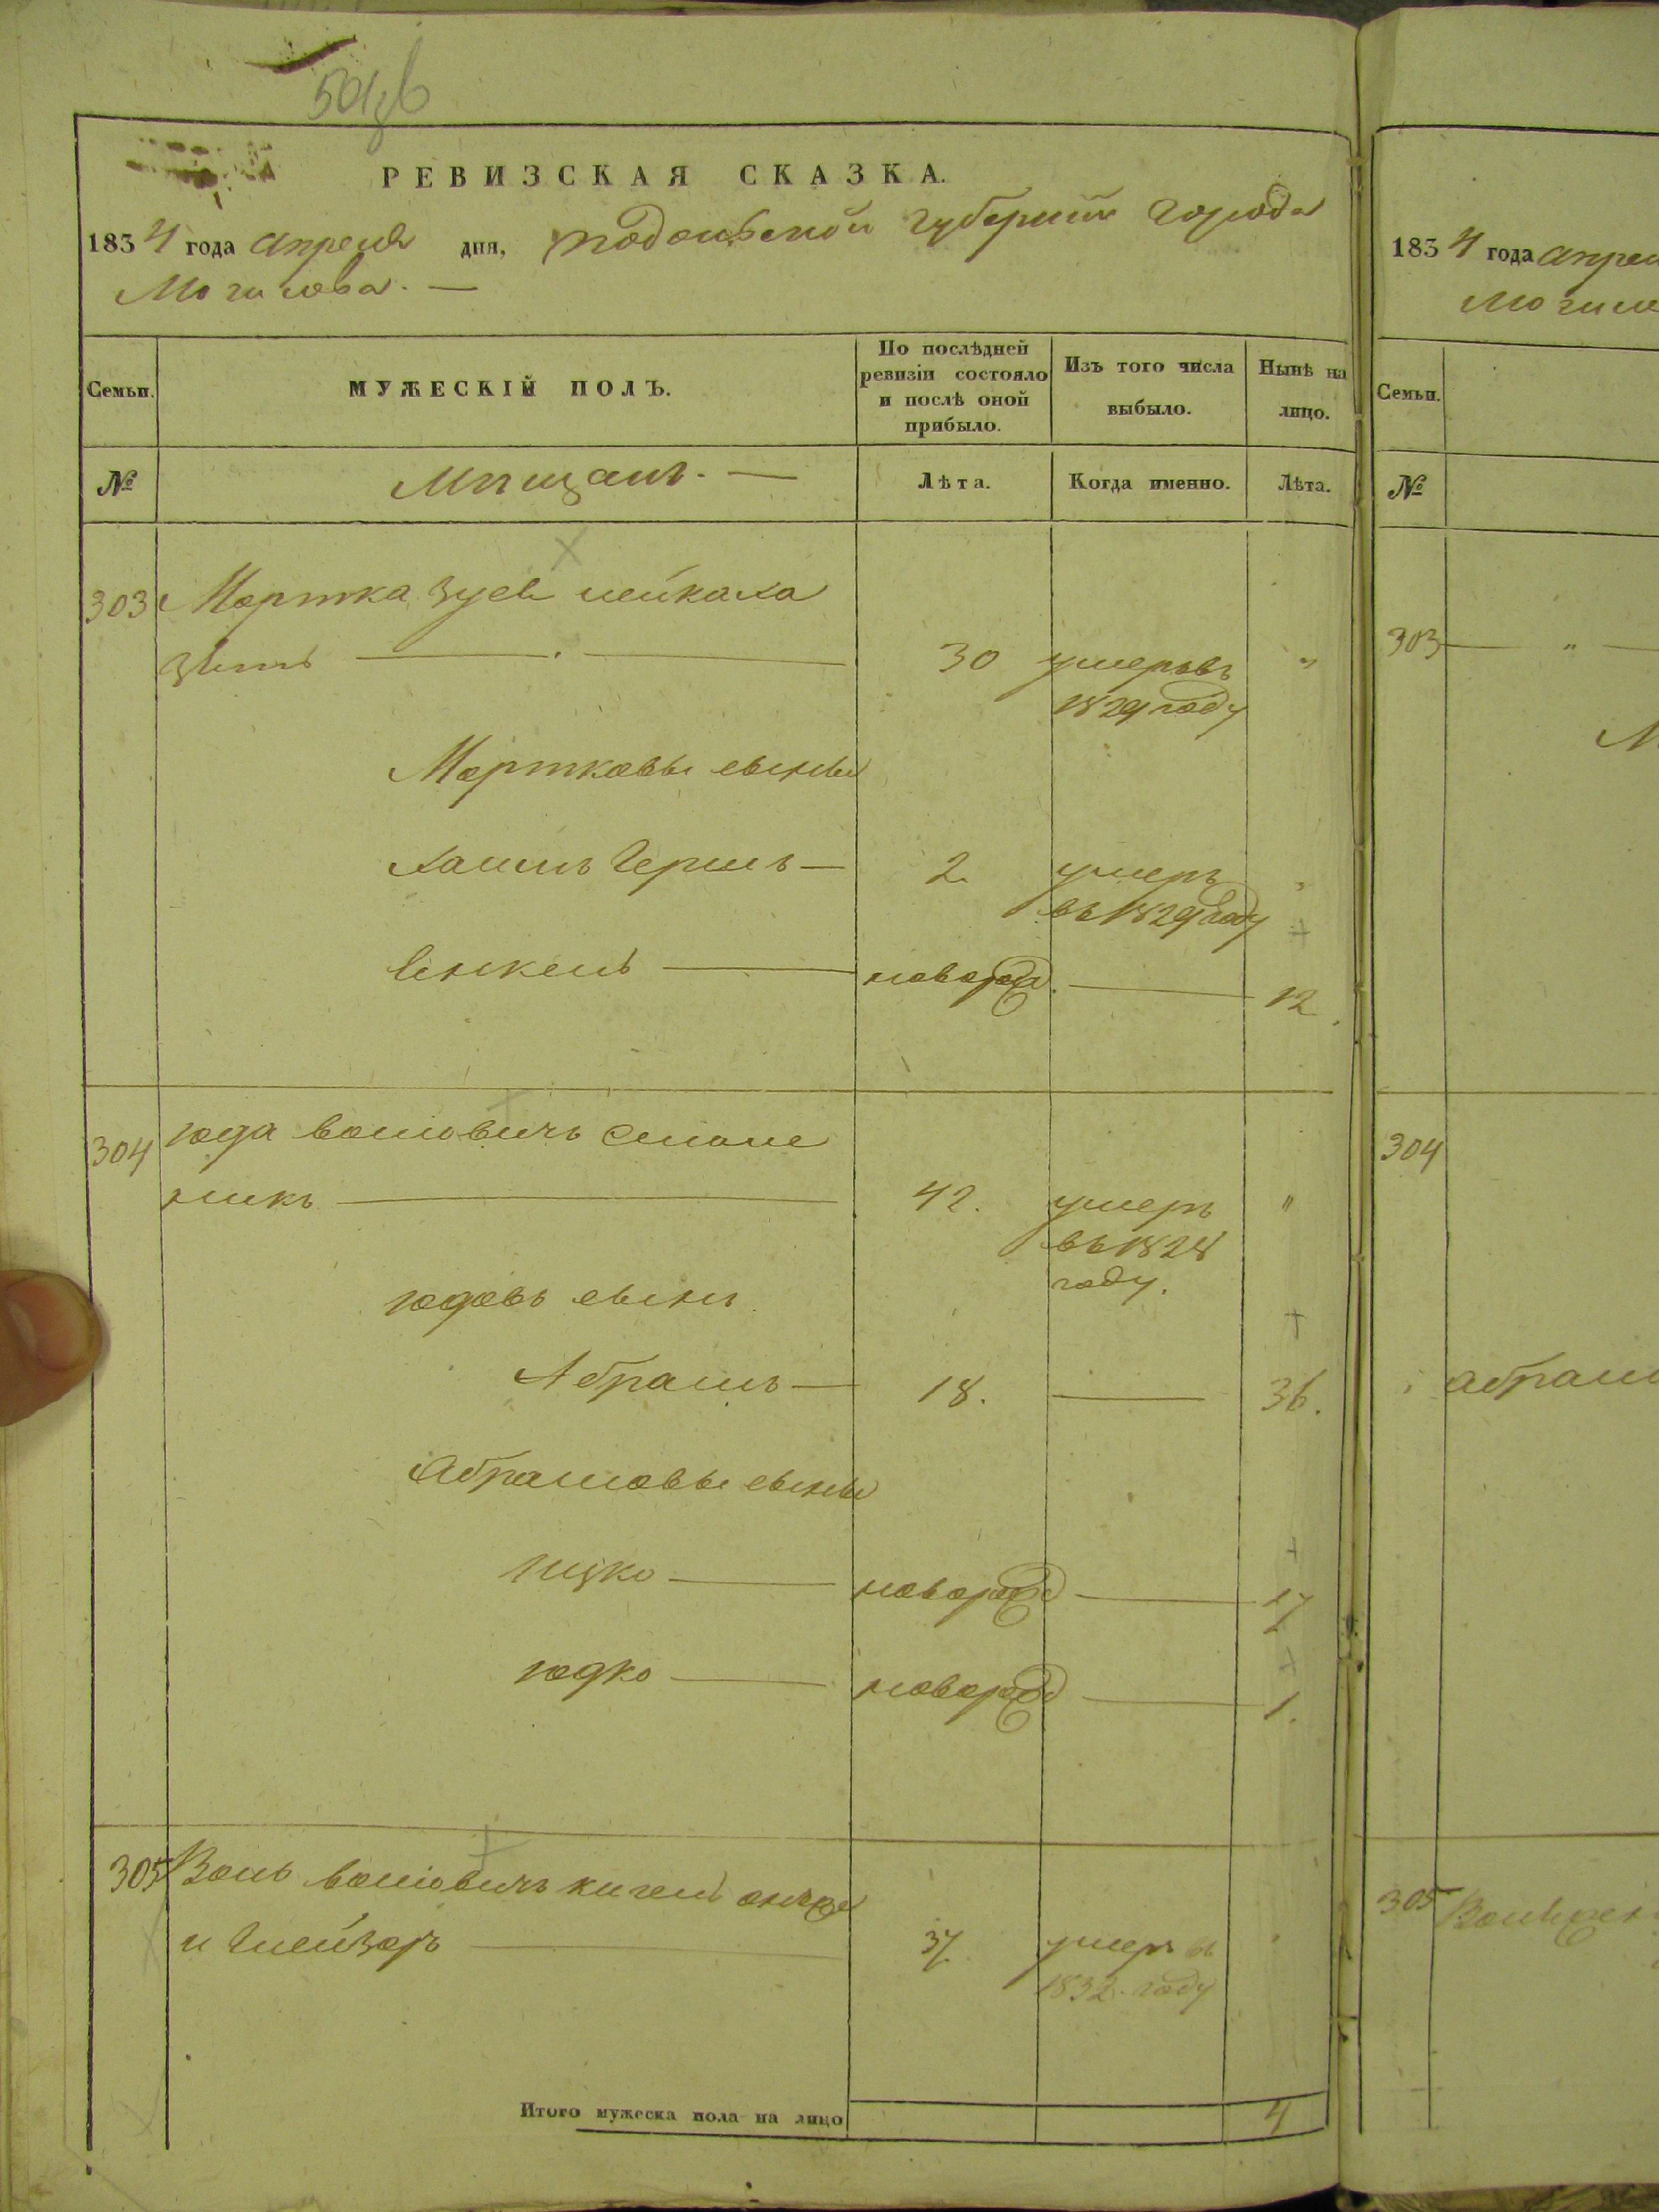 РЕВИЗСКАЯ СКАЗКА.
1834 года апреля дня, Подольской губернии города
Могилева. —
Семьи.
МУЖЕСКІЙ ПОЛЪ.
По послѣдней ревизіи состояло и послѣ оной прибыло.
Изъ того числа выбыло.
Нынѣ на лицо.
Семьи.
№
Мѣщанъ. —
Лѣта.
Когда именно.
Лѣта.
№
303 Мортка Зусев лейкаха
зять — 30 умеръ въ "
1829 году
Мортковы сыны
Хаимъ Гершъ — 2 умеръ
въ 1829 году
Сенкель — новорожд. — 12
304 Юда Волловичъ
никъ — 42. умеръ "
въ 1828
году.
Юдовъ сынъ
Абрамъ — 18. — 36.
Абрамовы сыны
Ицко — новорожд — 17
Юдко — новорожд — 1.
305 Волъ Волловичъ
и Шлейзоръ — 37 умеръ въ
1832. году
Итого мужеска пола на лицо 4
1834 года апрел
Могиле
303 — " —
304
Абрам
305